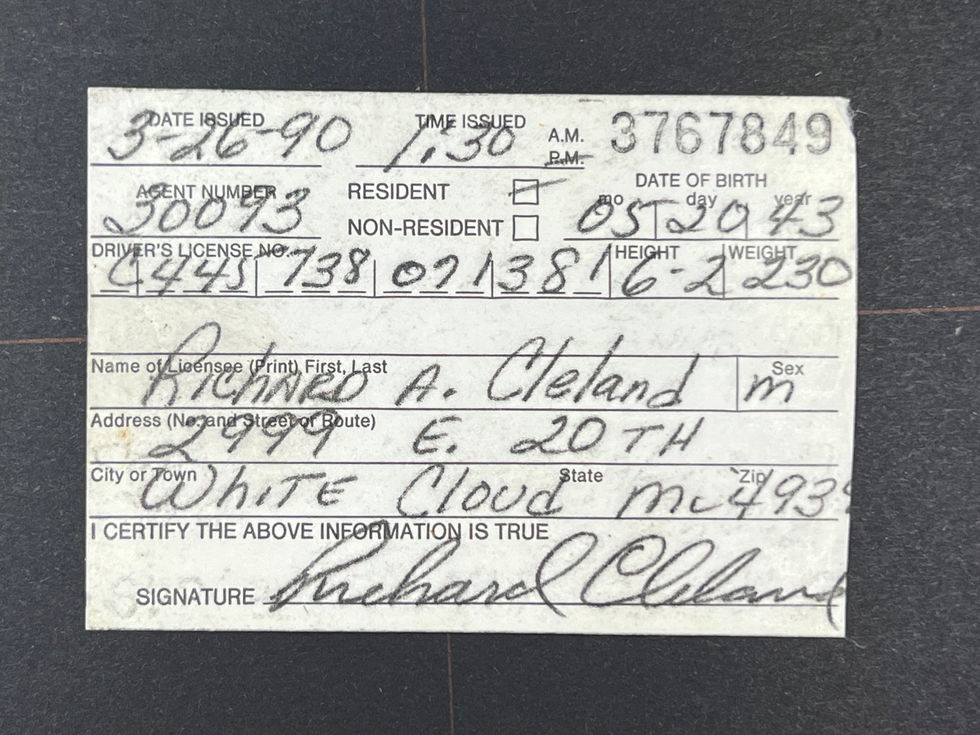 DATE ISSUED TIME ISSUED A.M. 3767849
3-26-90 1:30 P.M.
AGENT NUMBER RESIDENT DATE OF BIRTH
mo day year
30093 NON-RESIDENT 05 20 43
DRIVER'S LICENSE NO. HEIGHT WEIGHT
C 445 738 071 381 6-2 230
Name of Licensee (Print) First, Last Sex
RICHARD A. Cleland m
Address (No. and Street or Route)
2999 E. 20TH
City or Town State Zip
WhiTE Cloud
I CERTIFY THE ABOVE INFORMATION IS TRUE
SIGNATURE Richard Cleland